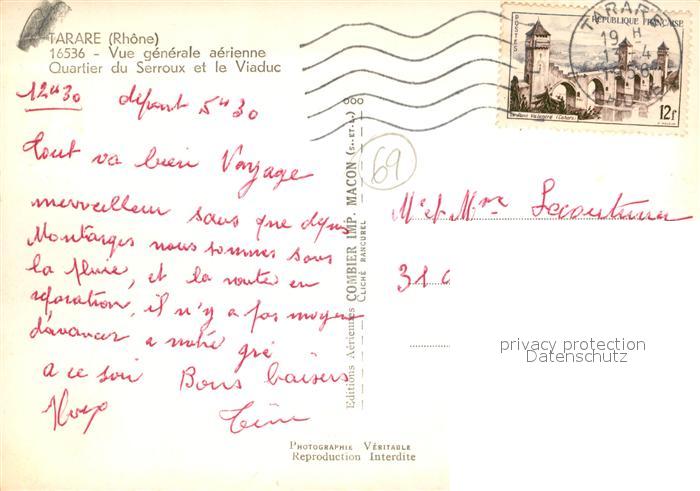 TARARE (Rhône)
16536 - Vue générale aérienne
Quartier du Serroux et le Viaduc
12h30 départ 5h30
Tout va bien Voyage
merveilleux sauf que depuis
Montargis nous sommes sous
la pluie, et la route en
réparation, il n'y a pas moyen
d'avancer a notre gré
a ce soir Bons baisers
Editions Aériennes COMBIER IMP. MACON (S.-ET-L.)
CLICHÉ RANCUREL
PHOTOGRAPHIE VÉRITABLE
Reproduction Interdite
69
TARARE
19 H
POSTES
REPUBLIQUE FRANÇAISE
Le Pont Valentré (Cahors)
12f
Mr et Mme Lecouturier
31 C
privacy protection
Datenschutz